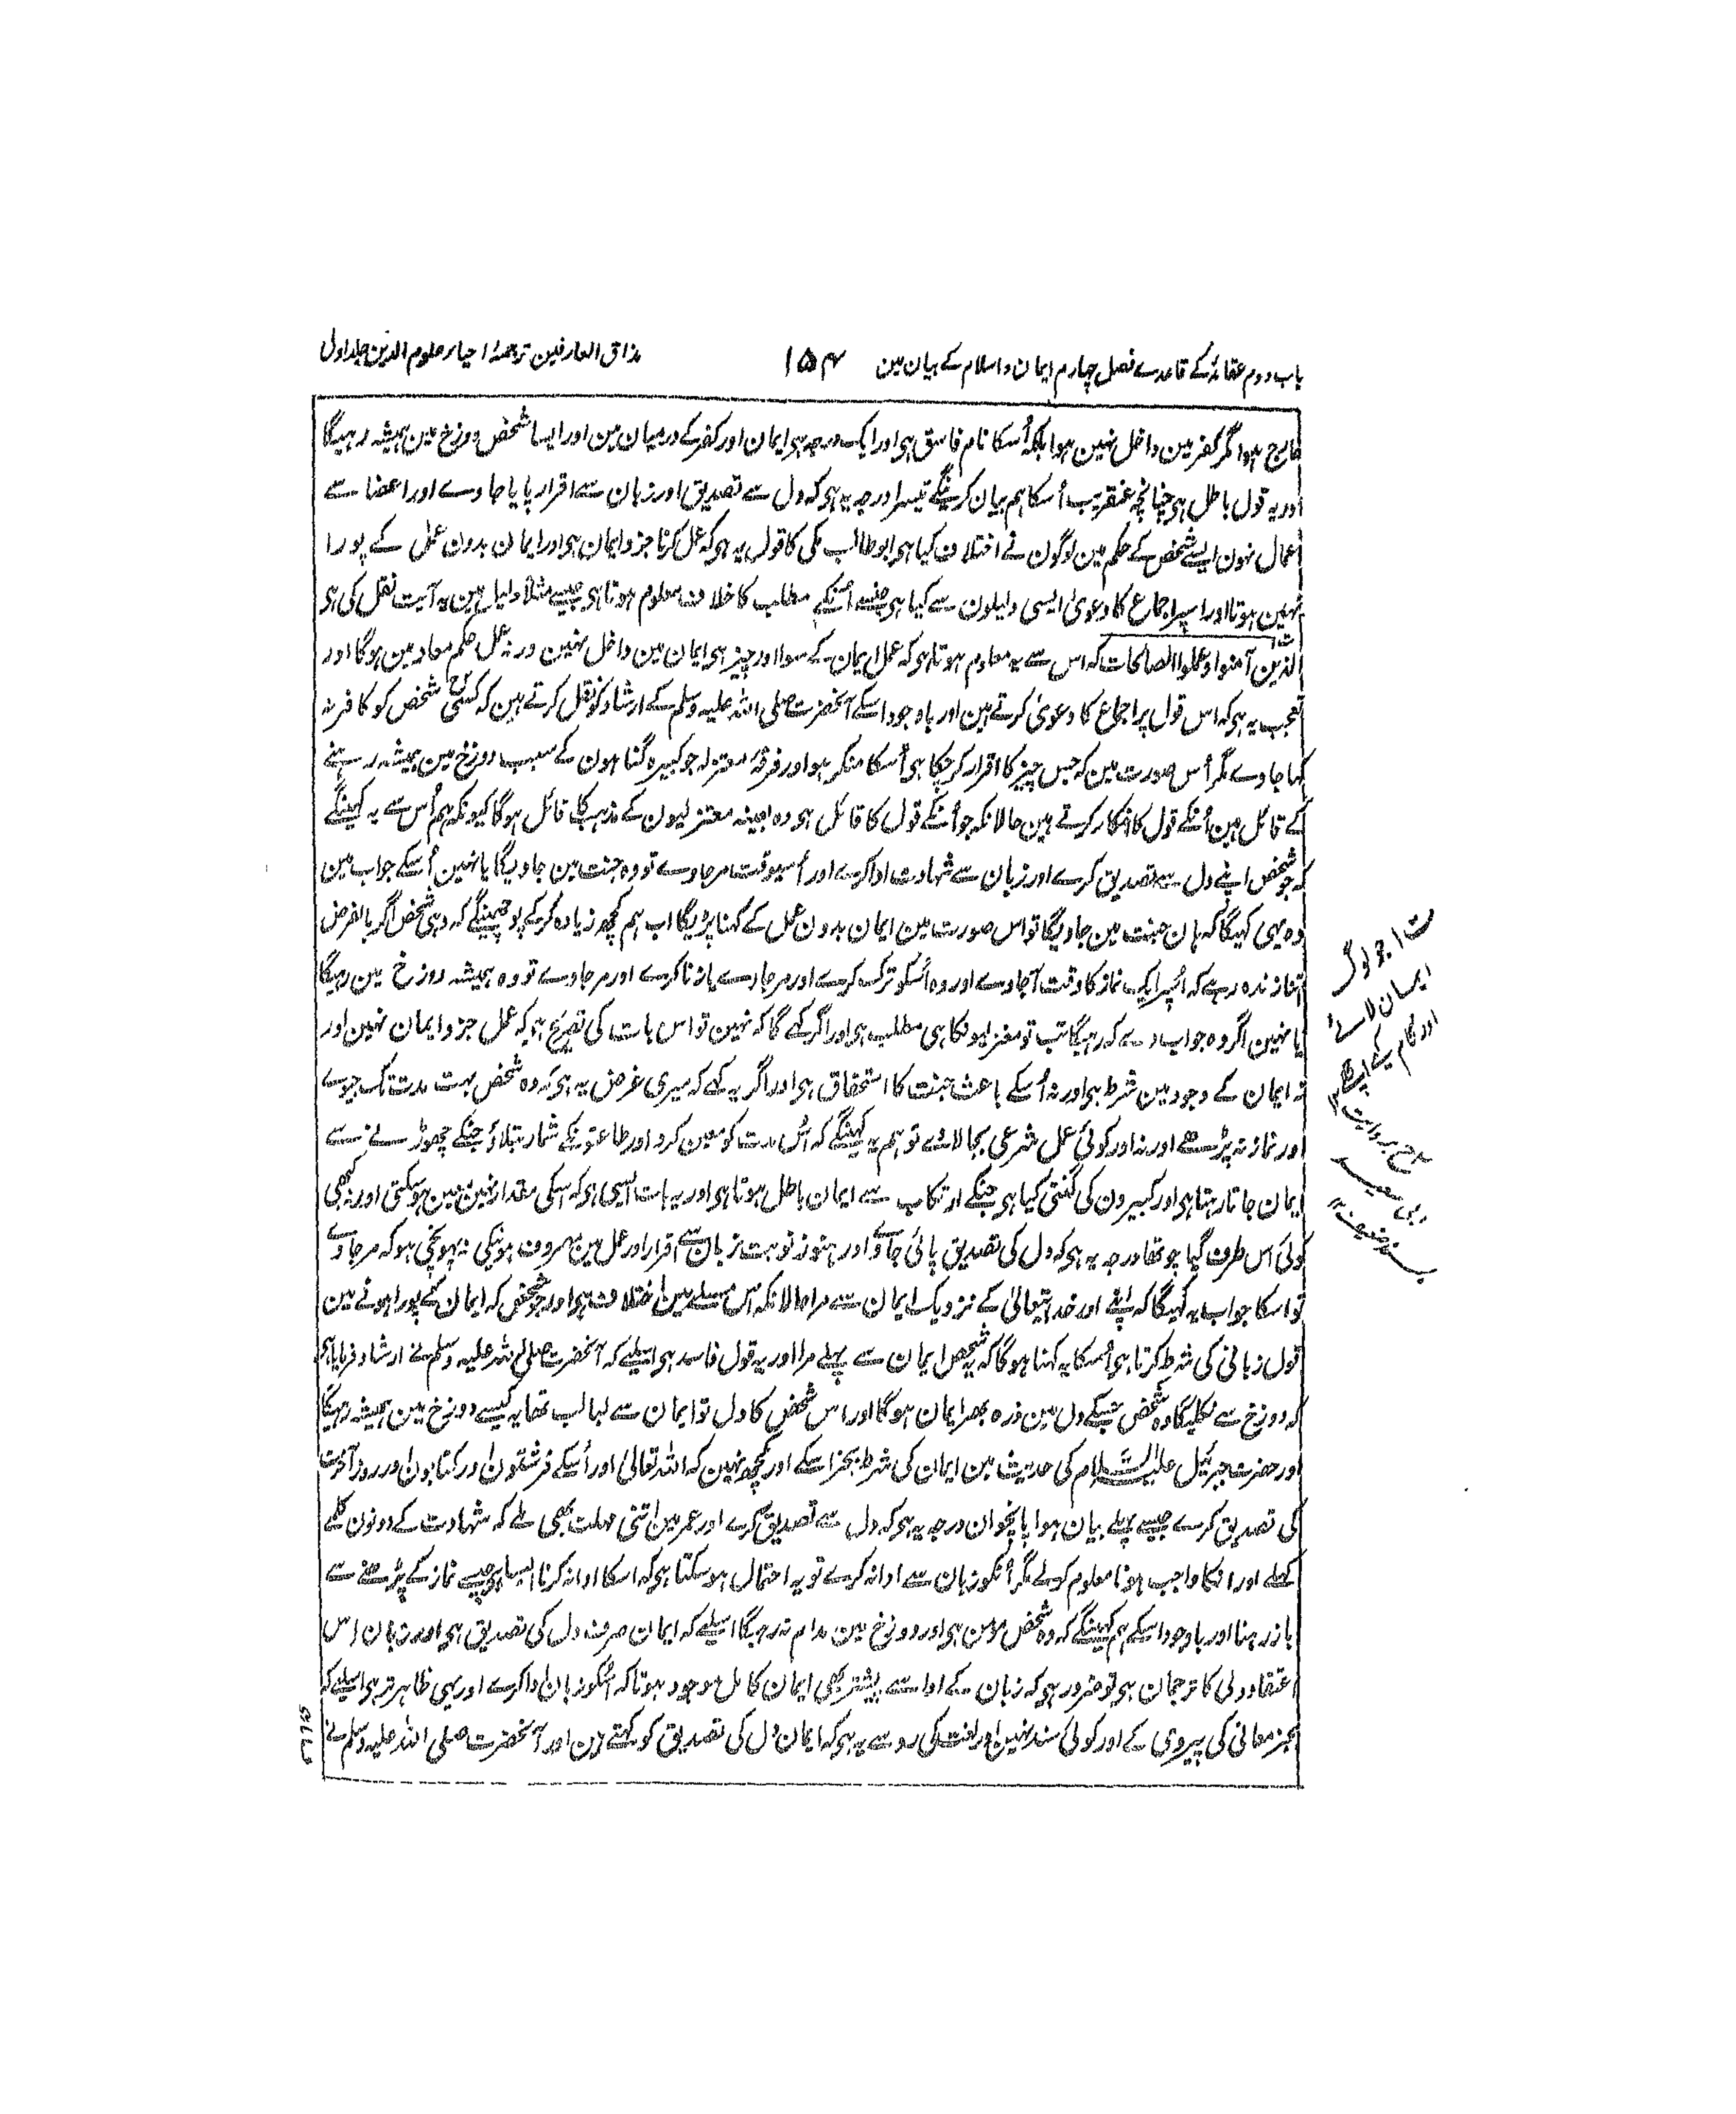 باب دوم عقائد کے قاعدے فصل چہارم ایمان و اسلام کے بیان مین
۱۵۴
مذاق العارفین ترجمۂ احیاء علوم الدین جلد اول
خارج ہوا مگر کفر مین داخل نہین ہوا بلکہ اُسکا نام فاسق ہی اور ایک درجہ ہی ایمان اور کفر کے درمیان مین اور ایسا شخص دوزخ مین ہمیشہ رہیگا
اور یہ قول باطل ہی چنانچہ عنقریب اُسکا ہم بیان کرینگے تیسرا درجہ یہ ہی کہ دل سے تصدیق اور زبان سے اقرار پایا جاوے اور اعضا سے
اعمال نہون ایسے شخص کے حکم مین لوگون نے اختلاف کیا ہی ابوطالب مکی کا قول یہ ہی کہ عمل کرنا جزو ایمان ہی اور ایمان بدون عمل کے پورا
نہین ہوتا اور اسپر اجماع کا دعویٰ ایسی دلیلون سے کیا ہی جنسے اُنکے مطلب کا خلاف معلوم ہوتا ہی جیسے مثلاً دلیل مین یہ آیت نقل کی ہی
الذین آمنوا وعملوا الصالحات کہ اس سے یہ معلوم ہوتا ہی کہ عمل ایمان کے سوا اور چیز ہی ایمان مین داخل نہین ورنہ عمل حکم معاد مین ہوگا اور
تعجب یہ ہی کہ اس قول پر اجماع کا دعویٰ کرتے ہین اور باوجود اسکے آنحضرت صلی اللہ علیہ وسلم کے ارشاد کو نقل کرتے ہین کہ کسی شخص کو کافر نہ
کہا جاوے مگر اُس صورت مین کہ جس چیز کا اقرار کرچکا ہی اُسکا منکر ہو اور فرقۂ معتزلہ جو کبیرہ گناہون کے سبب دوزخ مین ہمیشہ رہنے
کے قائل ہین اُنکے قول کا انکار کرتے ہین حالانکہ جو اُنکے قول کا قائل ہی وہ بعینہ معتزلیون کے مذہب کا قائل ہوگا کیونکہ ہم اُس سے یہ کہینگے
کہ جو شخص اپنے دل سے تصدیق کرے اور زبان سے شہادت ادا کرے اور اُسیوقت مرجاوے تو وہ جنت مین جاویگا یا نہین اُسکے جواب مین
وہ یہی کہیگا کہ ہان جنت مین جاویگا تو اس صورت مین ایمان بدون عمل کے کہنا پڑیگا اب ہم کچھ زیادہ کرکے پوچھینگے کہ وہی شخص اگر بالفرض
اتنا زندہ رہے کہ اُسپر ایک نماز کا وقت آجاوے اور وہ اُسکو ترک کرے اور مرجاوے یا زنا کرے اور مرجاوے تو وہ ہمیشہ دوزخ مین رہیگا
یا نہین اگر وہ جواب دے کہ رہیگا تب تو معتزلیونکا ہی مطلب ہی اور اگر کہے گا کہ نہین تو اس بات کی تصریح ہی کہ عمل جزو ایمان نہین اور
نہ ایمان کے وجود مین شرط ہی اور نہ اُسکے باعث جنت کا استحقاق ہی اور اگر یہ کہے کہ میری غرض یہ ہی کہ وہ شخص بہت مدت تک جیوے
اور نماز نہ پڑھے اور نہ اور کوئی عمل شرعی بجا لاوے تو ہم یہ کہینگے کہ اُس مدت کو معین کرو اور طاعتونکے شمار بتلاؤ جنکے چھوڑنے سے
ایمان جاتا رہتا ہی اور کبیرون کی گنتی کیا ہی جنکے ارتکاب سے ایمان باطل ہوتا ہی اور یہ بات ایسی ہی کہ اسکی مقدار نہین معین ہوسکتی اور نہ کبھی
کوئی اس طرف گیا چوتھا درجہ یہ ہی کہ دل کی تصدیق پائی جاوے اور ہنوز نوبت زبان سے اقرار اور عمل مین مصروف ہونیکی نہ پہونچی ہو کہ مرجاوے
تو اسکا جواب یہ کہیگا کہ اپنے اور خدا تعالیٰ کے نزدیک ایمان سے مرا حالانکہ اس مسئلے مین اختلاف ہی اور جو شخص کہ ایمان کے پورا ہونے مین
قول زبانی کی شرط کرتا ہی اُسکا یہ کہنا ہوگا کہ یہ شخص ایمان سے پہلے مرا اور یہ قول فاسد ہی اسلیے کہ آنحضرت صلی اللہ علیہ وسلم نے ارشاد فرمایا ہی
کہ دوزخ سے نکلیگا وہ شخص جسکے دل مین ذرہ بھر ایمان ہوگا اور اس شخص کا دل تو ایمان سے لبالب تھا یہ کیسے دوزخ مین ہمیشہ رہیگا
اور حضرت جبرئیل علیہ السلام کی حدیث مین ایمان کی شرط بجز اسکے اور کچھ نہین کہ اللہ تعالیٰ اور اُسکے فرشتون اور کتابون اور روز آخرت
کی تصدیق کرے جیسے پہلے بیان ہوا پانچوان درجہ یہ ہی کہ دل سے تصدیق کرے اور عمر مین اتنی مہلت بھی ملے کہ شہادت کے دونون کلمے
کہلے اور انکا واجب ہونا معلوم کرلے مگر اُنکو زبان سے ادا نہ کرے تو یہ احتمال ہوسکتا ہی کہ اسکا ادا نہ کرنا ایسا ہی جیسے نماز کے پڑھنے سے
باز رہنا اور باوجود اسکے ہم کہینگے کہ وہ شخص مومن ہی اور دوزخ مین مدام نہ رہیگا اسلیے کہ ایمان صرف دل کی تصدیق ہی اور زبان اس
اعتقاد دلی کا ترجمان ہی تو ضرور ہی کہ زبان کے ادا سے پیشتر بھی ایمان کامل موجود ہو تاکہ اُسکو زبان ادا کرے اور یہی ظاہر تر ہی اسلیے کہ
بجز معانی کی پیروی کے اور کوئی سند نہین اور لغت کی رو سے یہ ہی کہ ایمان دل کی تصدیق کو کہتے ہین اور آنحضرت صلی اللہ علیہ وسلم نے
ت ا جو لوگ
ایمان لائے
اور کام کیے اچھے ۱۲
ح بروایت
ابی سعید
بسند ضعیف ۱۲